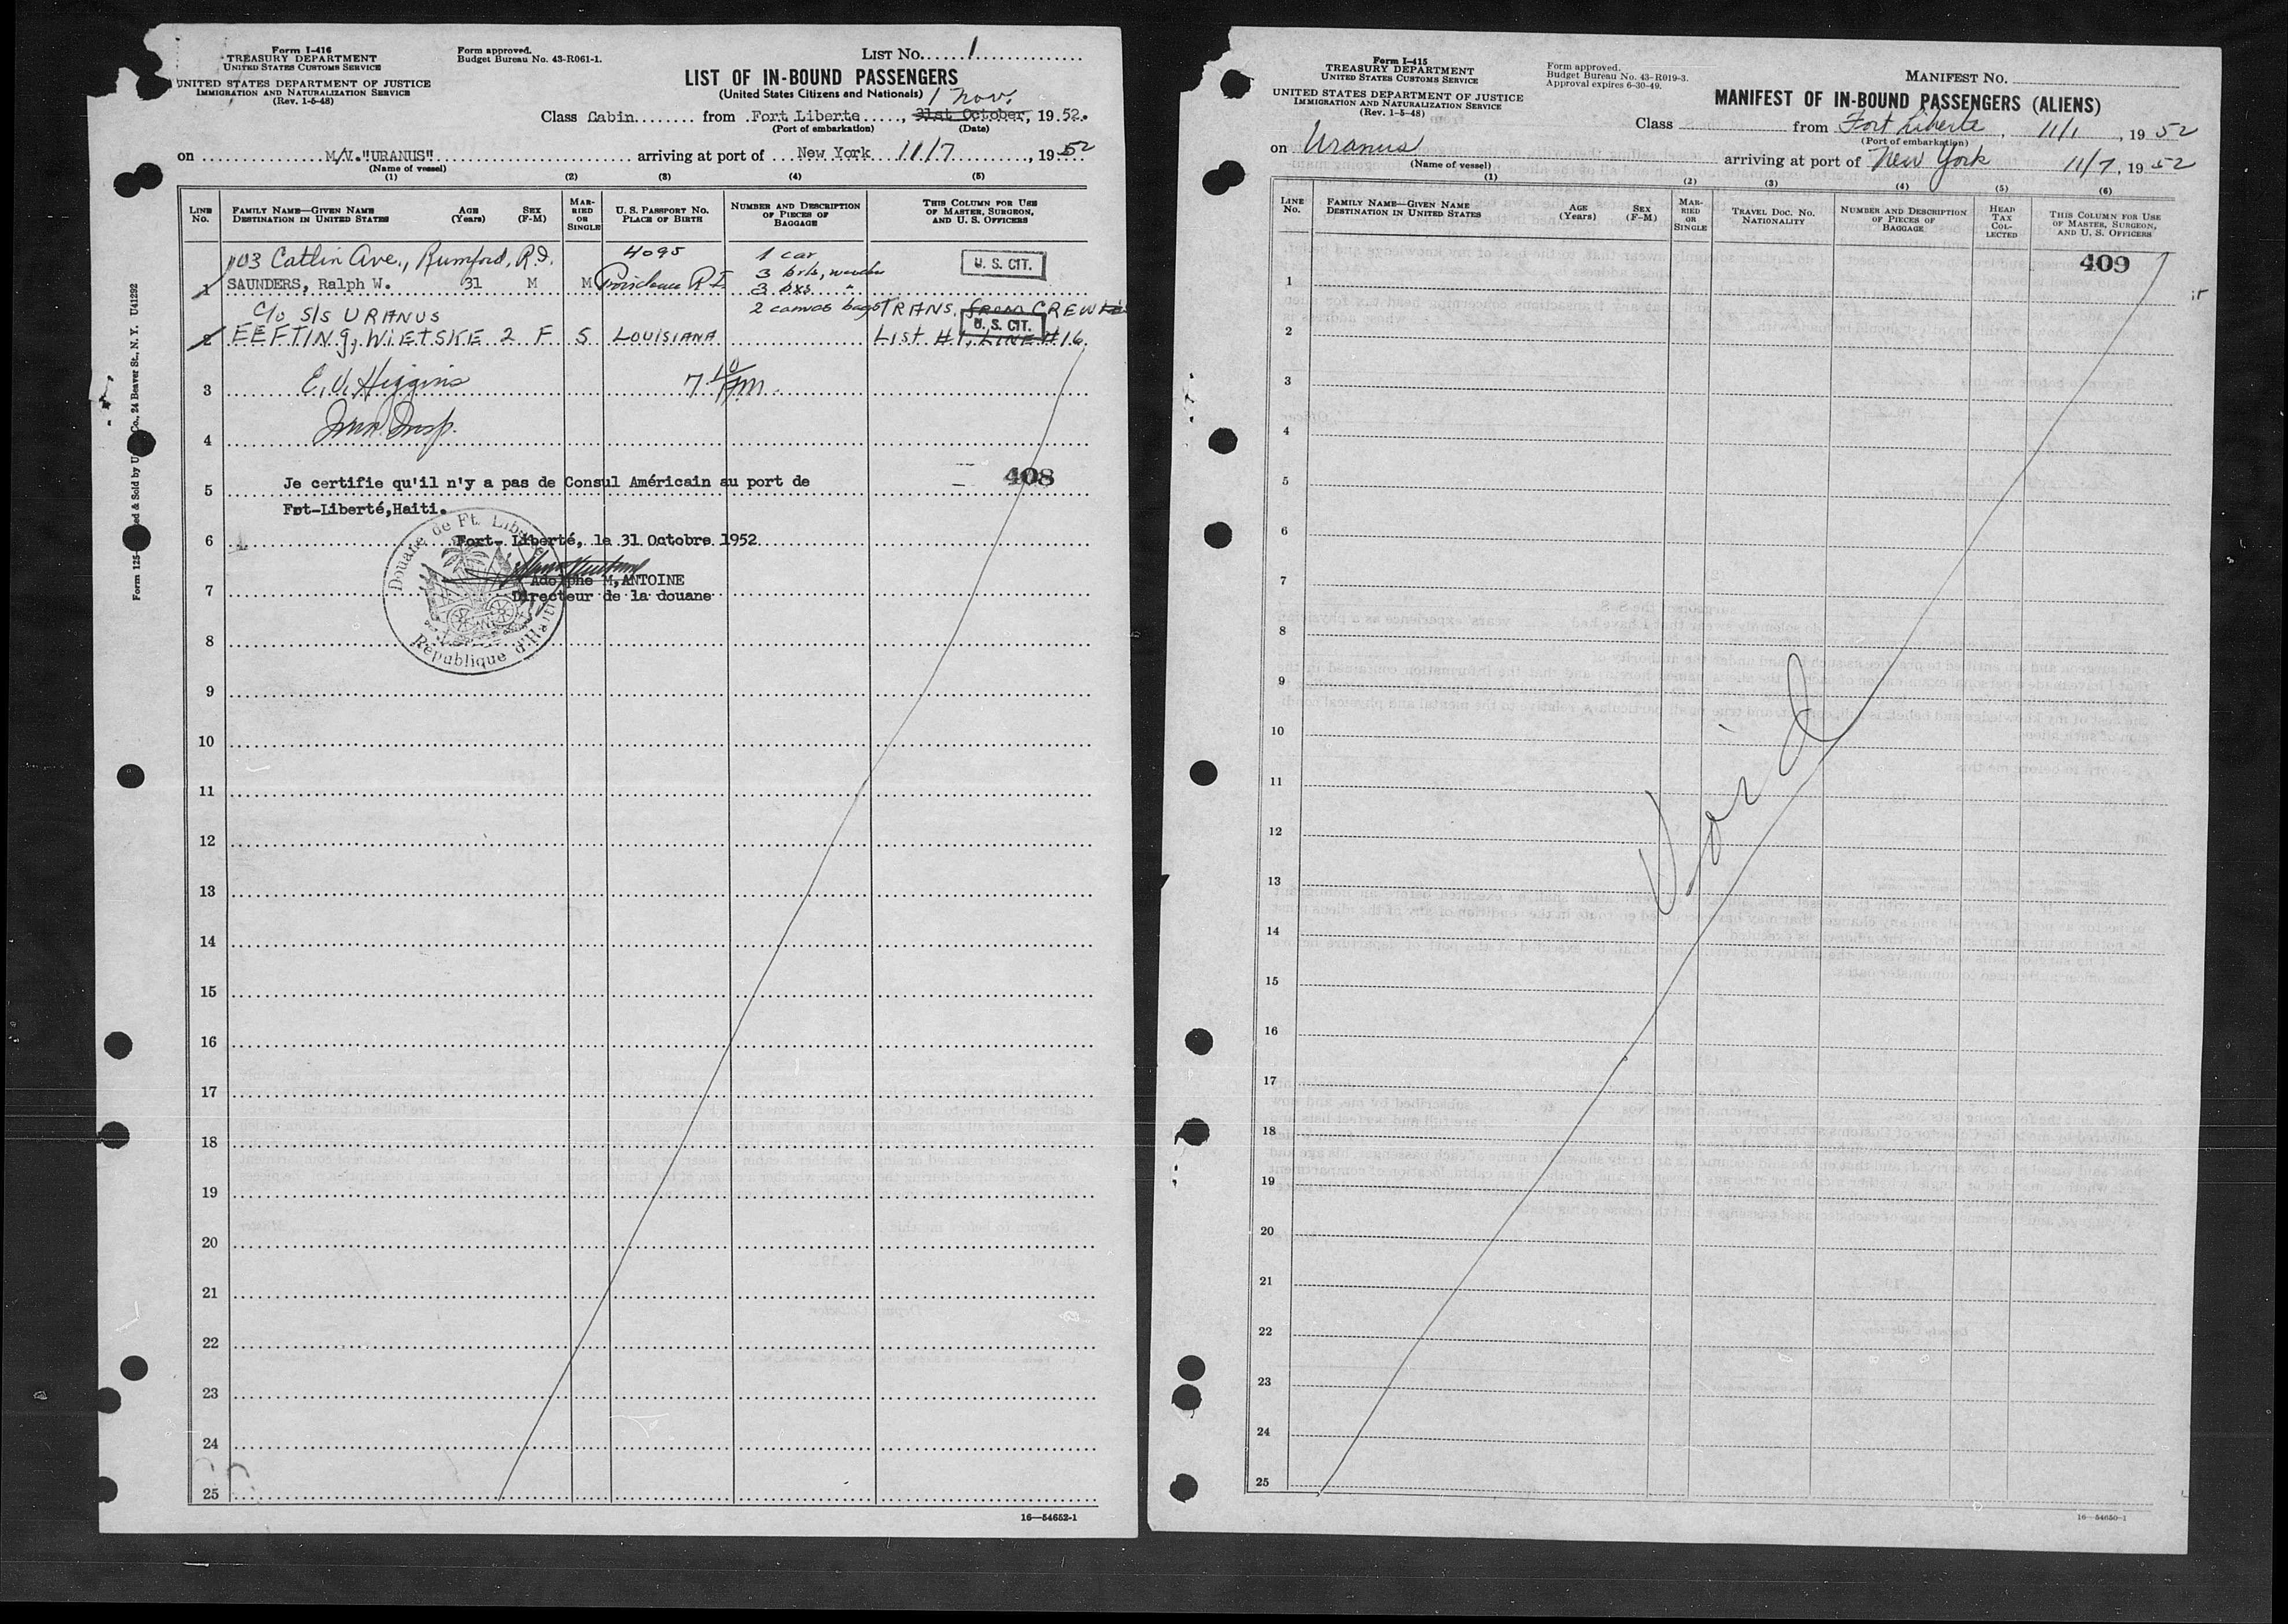 Form I-416
TREASURY DEPARTMENT
UNITED STATES CUSTOMS SERVICE
UNITED STATES DEPARTMENT OF JUSTICE
IMMIGRATION AND NATURALIZATION SERVICE
(Rev. 1-5-48)
Form approved.
Budget Bureau No. 43-R061-1.
LIST No. 1
LIST OF IN-BOUND PASSENGERS
(United States Citizens and Nationals)
1 Nov.
Class Cabin from Fort Liberte, 31st October, 1952.
(Port of embarkation) (Date)
on M/V."URANUS" arriving at port of New York 11/7, 1952
(Name of vessel)
(1) (2) (3) (4) (5)
LINE No. FAMILY NAME—GIVEN NAME DESTINATION IN UNITED STATES AGE (Years) SEX (F-M) MARRIED OR SINGLE U. S. PASSPORT NO. PLACE OF BIRTH NUMBER AND DESCRIPTION OF PIECES OF BAGGAGE THIS COLUMN FOR USE OF MASTER, SURGEON, AND U. S. OFFICERS
103 Catlin Ave., Rumford, R.I. 4095 1 car
3 brls, wooden U. S. CIT.
1 SAUNDERS, Ralph W. 31 M M Providence R I 3 bxs "
C/o S/S URANUS 2 canvas bags TRANS. from CREW
U. S. CIT.
2 EEFTING, WIETSKE 2 F S LOUISIANA LIST #1, LINE #16
3 E. V. Higgins 7 10 PM.
4 Imm. Insp.
408
5 Je certifie qu'il n'y a pas de Consul Américain au port de
Føt-Liberté,Haiti.
6 Fort- Liberté, le 31 Octobre 1952
Adolphe M,ANTOINE
7 Directeur de la douane
Douane de Ft. Liberté
République d'Haiti
8
9
10
11
12
13
14
15
16
17
18
19
20
21
22
23
24
25
16—54652-1
Co., 24 Beaver St., N. Y. U41292
Form I-415
TREASURY DEPARTMENT
UNITED STATES CUSTOMS SERVICE
UNITED STATES DEPARTMENT OF JUSTICE
IMMIGRATION AND NATURALIZATION SERVICE
(Rev. 1-5-48)
Form approved.
Budget Bureau No. 43-R019-3.
Approval expires 6-30-49.
MANIFEST No.
MANIFEST OF IN-BOUND PASSENGERS (ALIENS)
Class from Fort Liberte, 11/1, 1952
(Port of embarkation)
on Uranus arriving at port of New York 11/7, 1952
(Name of vessel)
(1) (2) (3) (4) (5) (6)
LINE No. FAMILY NAME—GIVEN NAME DESTINATION IN UNITED STATES AGE (Years) SEX (F-M) MARRIED OR SINGLE TRAVEL DOC. NO. NATIONALITY NUMBER AND DESCRIPTION OF PIECES OF BAGGAGE HEAD TAX COLLECTED THIS COLUMN FOR USE OF MASTER, SURGEON, AND U. S. OFFICERS
409
1
2
3
4
5
6
7
8
9
10
Void
11
12
13
14
15
16
17
18
19
20
21
22
23
24
25
16—54650-1